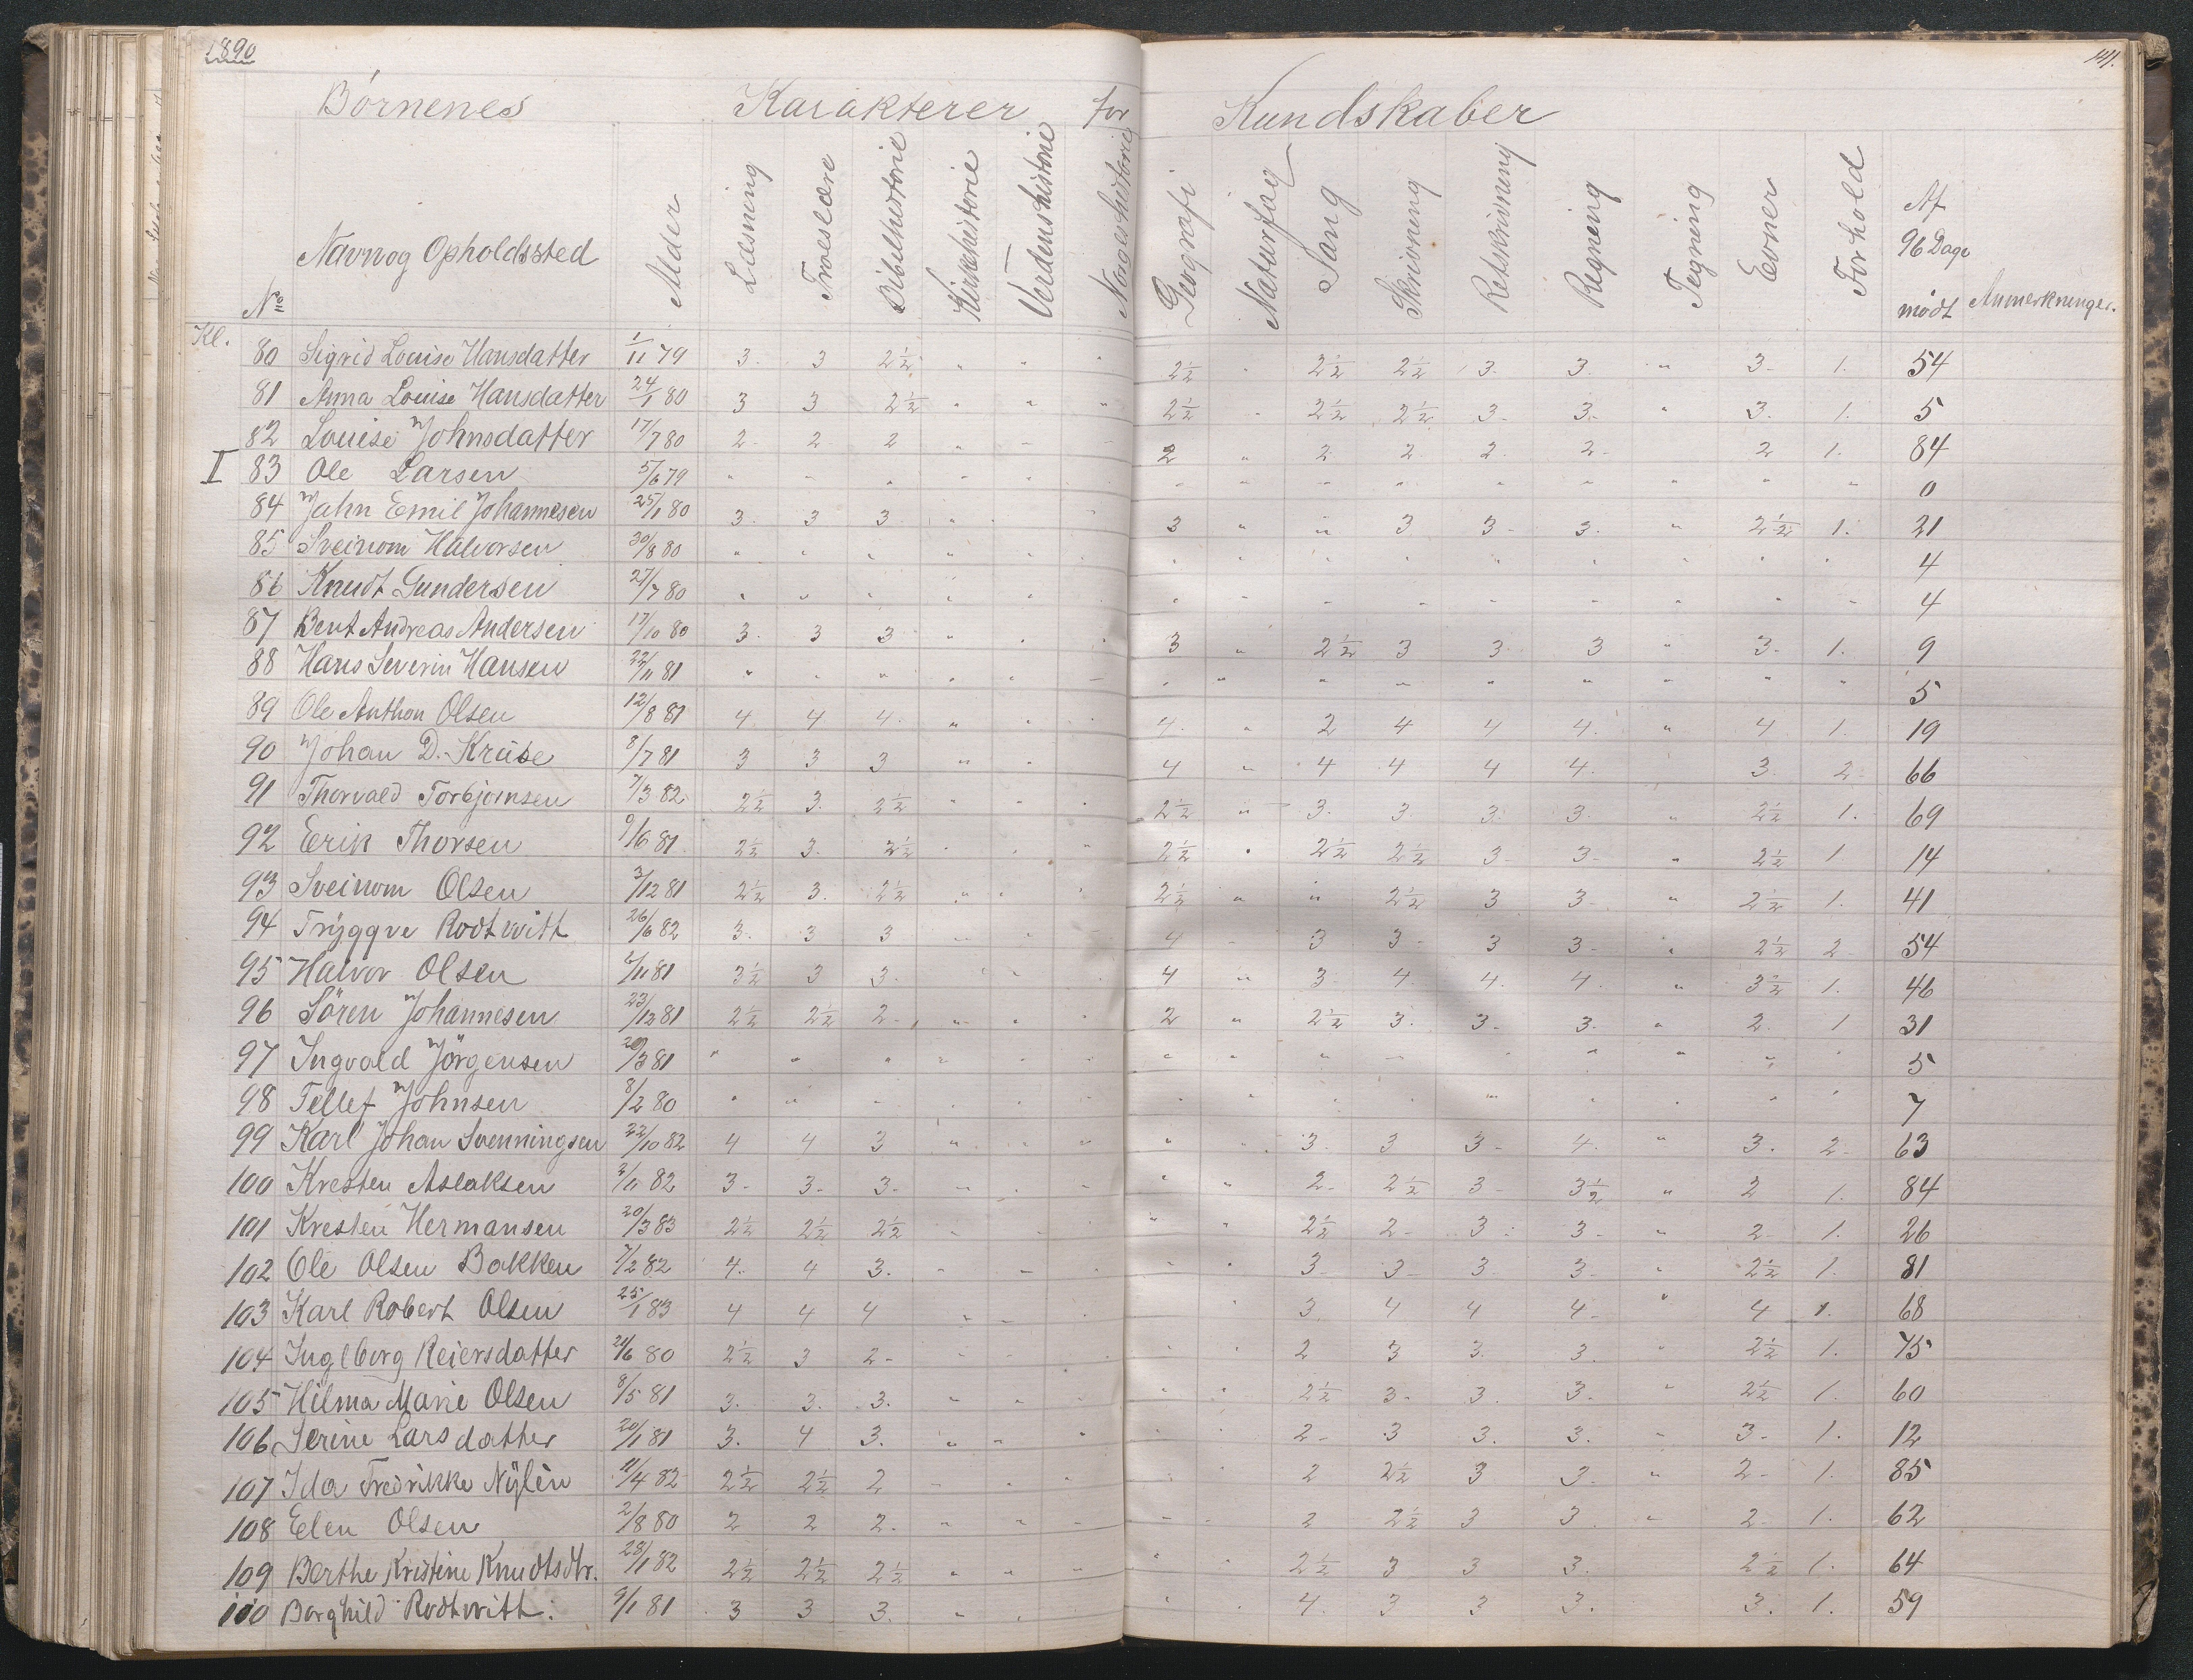 1890
141.
Børnenes Karakterer for Kundskaber
No Navn og Opholdssted Alder Læsning Troeslære Bibelhistorie Kirkehistorie Verdenshistorie Norgeshistorie Geografi Naturfag Sang Skrivning Retskrivning Regning Tegning Evner Forhold Af 96 Dage mødt Anmerkninger.
Kl.
80 Sigrid Louise Hansdatter 1/11 79 3. 3 2½ " " " 2½ " 2½ 2½ 3. 3. " 3. 1. 54
81 Anna Louise Hansdatter 24/1 80 3 3 2½ " " " 2½ " 2½ 2½ 3. 3. " 3. 1. 5
82 Louise Johnsdatter 17/7 80 2 2 2 " " " 2 " 2 2 2 2 2 1. 84
I 83 Ole Larsen 5/6 79 " " " " " " " " " " " " " " " 0
84 Jahn Emil Johannesen 25/1 80 3. 3 3 " " " 3 " " 3 3 3. " 2½ 1. 21
85 Sveinom Halvorsen 30/8 80 " " " " " " " " " " " " " " " 4
86 Knudt Gundersen 27/7 80 " " " " " " " " " " " " " " " 4
87 Bent Andreas Andersen 17/10 80 3. 3 3 " " " 3 " 2½ 3 3 3 " 3. 1. 9
88 Hans Severin Hansen 22/11 81 " " " " " " " " " " " " " " " 5
89 Ole Anthon Olsen 12/8 81 4 4 4. " " " 4. " 2 4 4 4. " 4 1. 19
90 Johan D. Kruse 8/7 81 3 3 3 " " 4 " 4 4 4 4. 3 2 66
91 Thorvald Torbjørnsen 7/3 82 2½ 3. 2½ " " " 2½ " 3. 3 3. 3. " 2½ 1. 69
92 Eerik Thorsen 9/6 81 2½ 3. 2½ " " " 2½ " 2½ 2½ 3 3. " 2½ 1 14
93 Sveinom Olsen 3/12 81 2½ 3. 2½ " " " 2½ " " 2½ 3 3 " 2½ 1. 41
94 Tryggve Rodtwitt 26/6 82 3. 3 3 " " " 4 " 3 3 3 3 " 2½ 2 54
95 Halvor Olsen 6/11 81 3½ 3 3. " " 4 " 3 4. 4. 4. " 3½ 1. 46
96 Sören Johannesen 23/12 81 2½ 2½ 2 " " " 2 " 2½ 3. 3. 3. " 2. 1 31
97 Ingvald Jörgensen 20/3 81 " " " " " " " " " " " " " " " 5
98 Tellef Johnsen 8/2 80 " " " " " " " " " " " " " " " 7
99 Karl Johan Svenningsen 22/10 82 4 4 3 " " " " " 3. 3 3 4. " 3. 2 63
100 Kresten Aslaksen 2/11 82 3 3 3 " " " " " 2 2½ 3 3½ " 2 1. 84
101 Kresten Hermansen 20/3 83 2½ 2½ 2½ " " " " 2½ 2 3 3 " 2 1. 26
102 Ole Olsen Bakken 7/2 82 4. 4 3. " " " " " 3 3 3 3 " 2½ 1. 81
103 Karl Robert Olsen 25/1 83 4 4 4 " " " " 3 4 4 4 " 4 1. 68
104 Ingeborg Reiersdatter 21/6 80 2½ 3 2 " " " " " 2 3 3. 3. " 2½ 1. 75
105 Hilma Marie Olsen 8/5 81 3. 3. 3. " " " " 2½ 3. 3. 3. " 2½ 1. 60
106 Serine Larsdatter 20/1 81 3. 4 3. " " " " " 2 3 3. 3. " 3. 1. 12
107 Ida Fredrikke Nylèn 11/4 82 2½ 2½ 2 " " " " " 2 2½ 3 3. " 2 1. 85
108 Elen Olsen 2/8 80 2 2 2. " " " " " 2 2½ 3 3 " 2 1. 62
109 Berthe Kristine Knudtsdtr. 28/1 82 2½ 2½ 2½ " " " " " 2½ 3 3 3. 2½ 1. 64
110 Borghild Rodtwitt. 9/1 81 3 3 3. " " " " 4. 3 3 3. 3. 1. 59